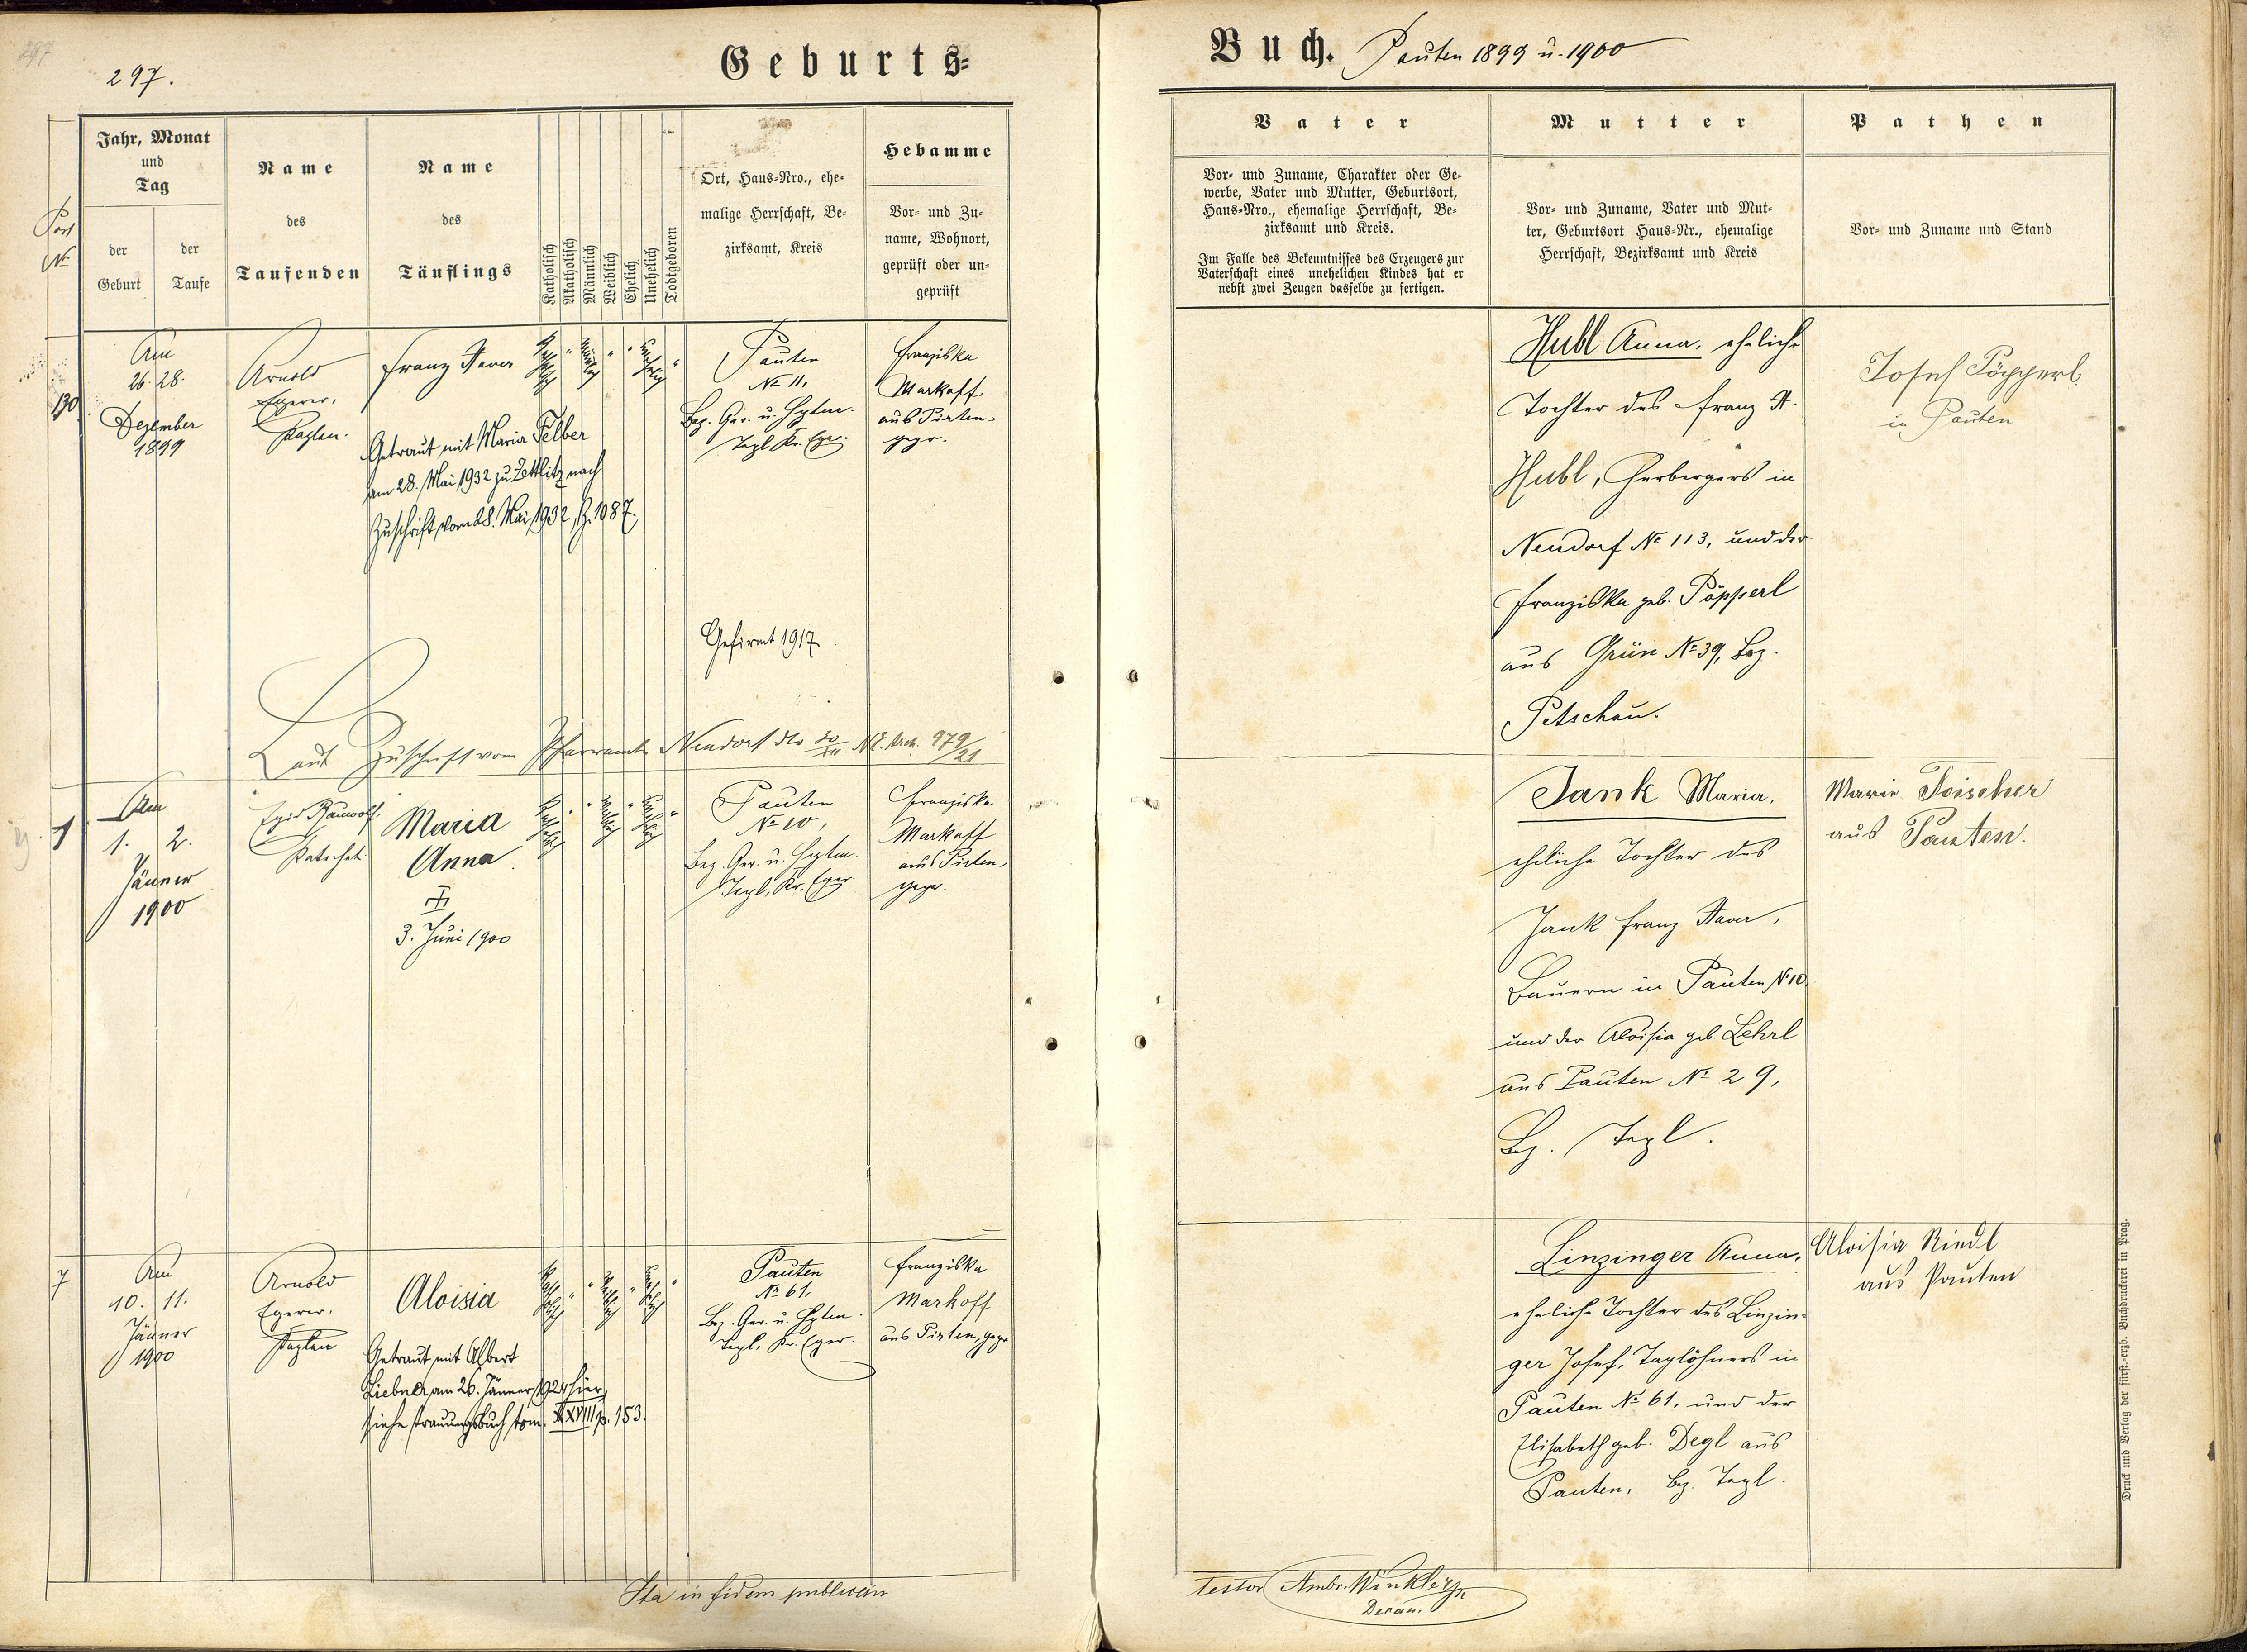 297.
Geburts-
Buch. Pauten 1899 u. 1900
Post
№
Jahr, Monat
und
Tag
der
Geburt
der
Taufe
Name
des
Taufenden
Name
des
Täuflings
Katholisch
Akatholisch
Männlich
Weiblich
Ehelich
Unehelich
Todtgeboren
Ort, Haus-Nro., ehe-
malige Herrschaft, Be-
zirksamt, Kreis
Hebamme
Vor- und Zu-
name, Wohnort,
geprüft oder un-
geprüft
Vater
Vor- und Zuname, Charakter oder Ge-
werbe, Vater und Mutter, Geburtsort,
Haus-Nro., ehemalige Herrschaft, Be-
zirksamt und Kreis.
Im Falle des Bekenntnisses des Erzeugers zur
Vaterschaft eines unehelichen Kindes hat er
nebst zwei Zeugen dasselbe zu fertigen.
Mutter
Vor- und Zuname, Vater und Mut-
ter, Geburtsort Haus-Nr., ehemalige
Herrschaft, Bezirksamt und Kreis
Pathen
Vor- und Zuname und Stand
130
Am
26. 28.
Dezember
1899
Arnold
Egerer,
Kaplan.
Franz Xaver
Getraut mit Maria Felber
am 28. Mai 1932 zu Zettlitz nach
Zuschrift vom 28. Mai 1932, Z. 1087.
Katholisch " Männlich " " Unehelich "
Pauten
№ 11,
Bez. Ger. u. Hptm.
Tepl Kr. Eger.
Gefirmt 1917
Franziska
Markoff
aus Pirten,
gepr.
Hubl Anna, eheliche
Tochter des Franz X.
Hubl, Herbergers in
Neudorf № 113, und der
Franziska geb. Pöpperl
aus Grün № 39, Bez.
Petschau.
Josef Pöpperl
in Pauten
Laut Zuschrift vom Pfarramte Neudorf dto 20/XII № 979/21
1
Am
1. 2.
Jänner
1900
Egid Rauwolf,
Katechet.
Maria
Anna
3. Juni 1900
Katholisch " " Weiblich " Unehelich "
Pauten
№ 10,
Bez. Ger. u. Hptm.
Tepl, Kr. Eger
Franziska
Markoff
aus Pirten,
gepr.
Jank Maria,
eheliche Tochter des
Jank Franz Xaver,
Bauern in Pauten № 10,
und der Aloisia geb. Lehrl
aus Pauten № 29,
Bez. Tepl.
Marie Toischer
aus Pauten.
7
Am
10. 11.
Jänner
1900
Arnold
Egerer,
Kaplan
Aloisia
Getraut mit Albert
Liebner am 26. Jänner 1924 hier,
siehe Trauungsbuch tom. XXVIII p. 153.
Katholisch " " Weiblich " Unehelich "
Pauten
№ 61,
Bez. Ger. u. Hptm.
Tepl, Kr. Eger.
Franziska
Markoff
aus Pirten, gepr.
Linzinger Anna,
eheliche Tochter des Linzin-
ger Josef, Taglöhners in
Pauten № 61, und der
Elisabeth geb. Degl aus
Pauten, Bez. Tepl.
Aloisia Riedl
aus Pauten
Ita in fidem publicam
testor Ambr. Winkler
Decan.
Druck und Verlag der fürst.-erzb. Buchdruckerei in Prag.